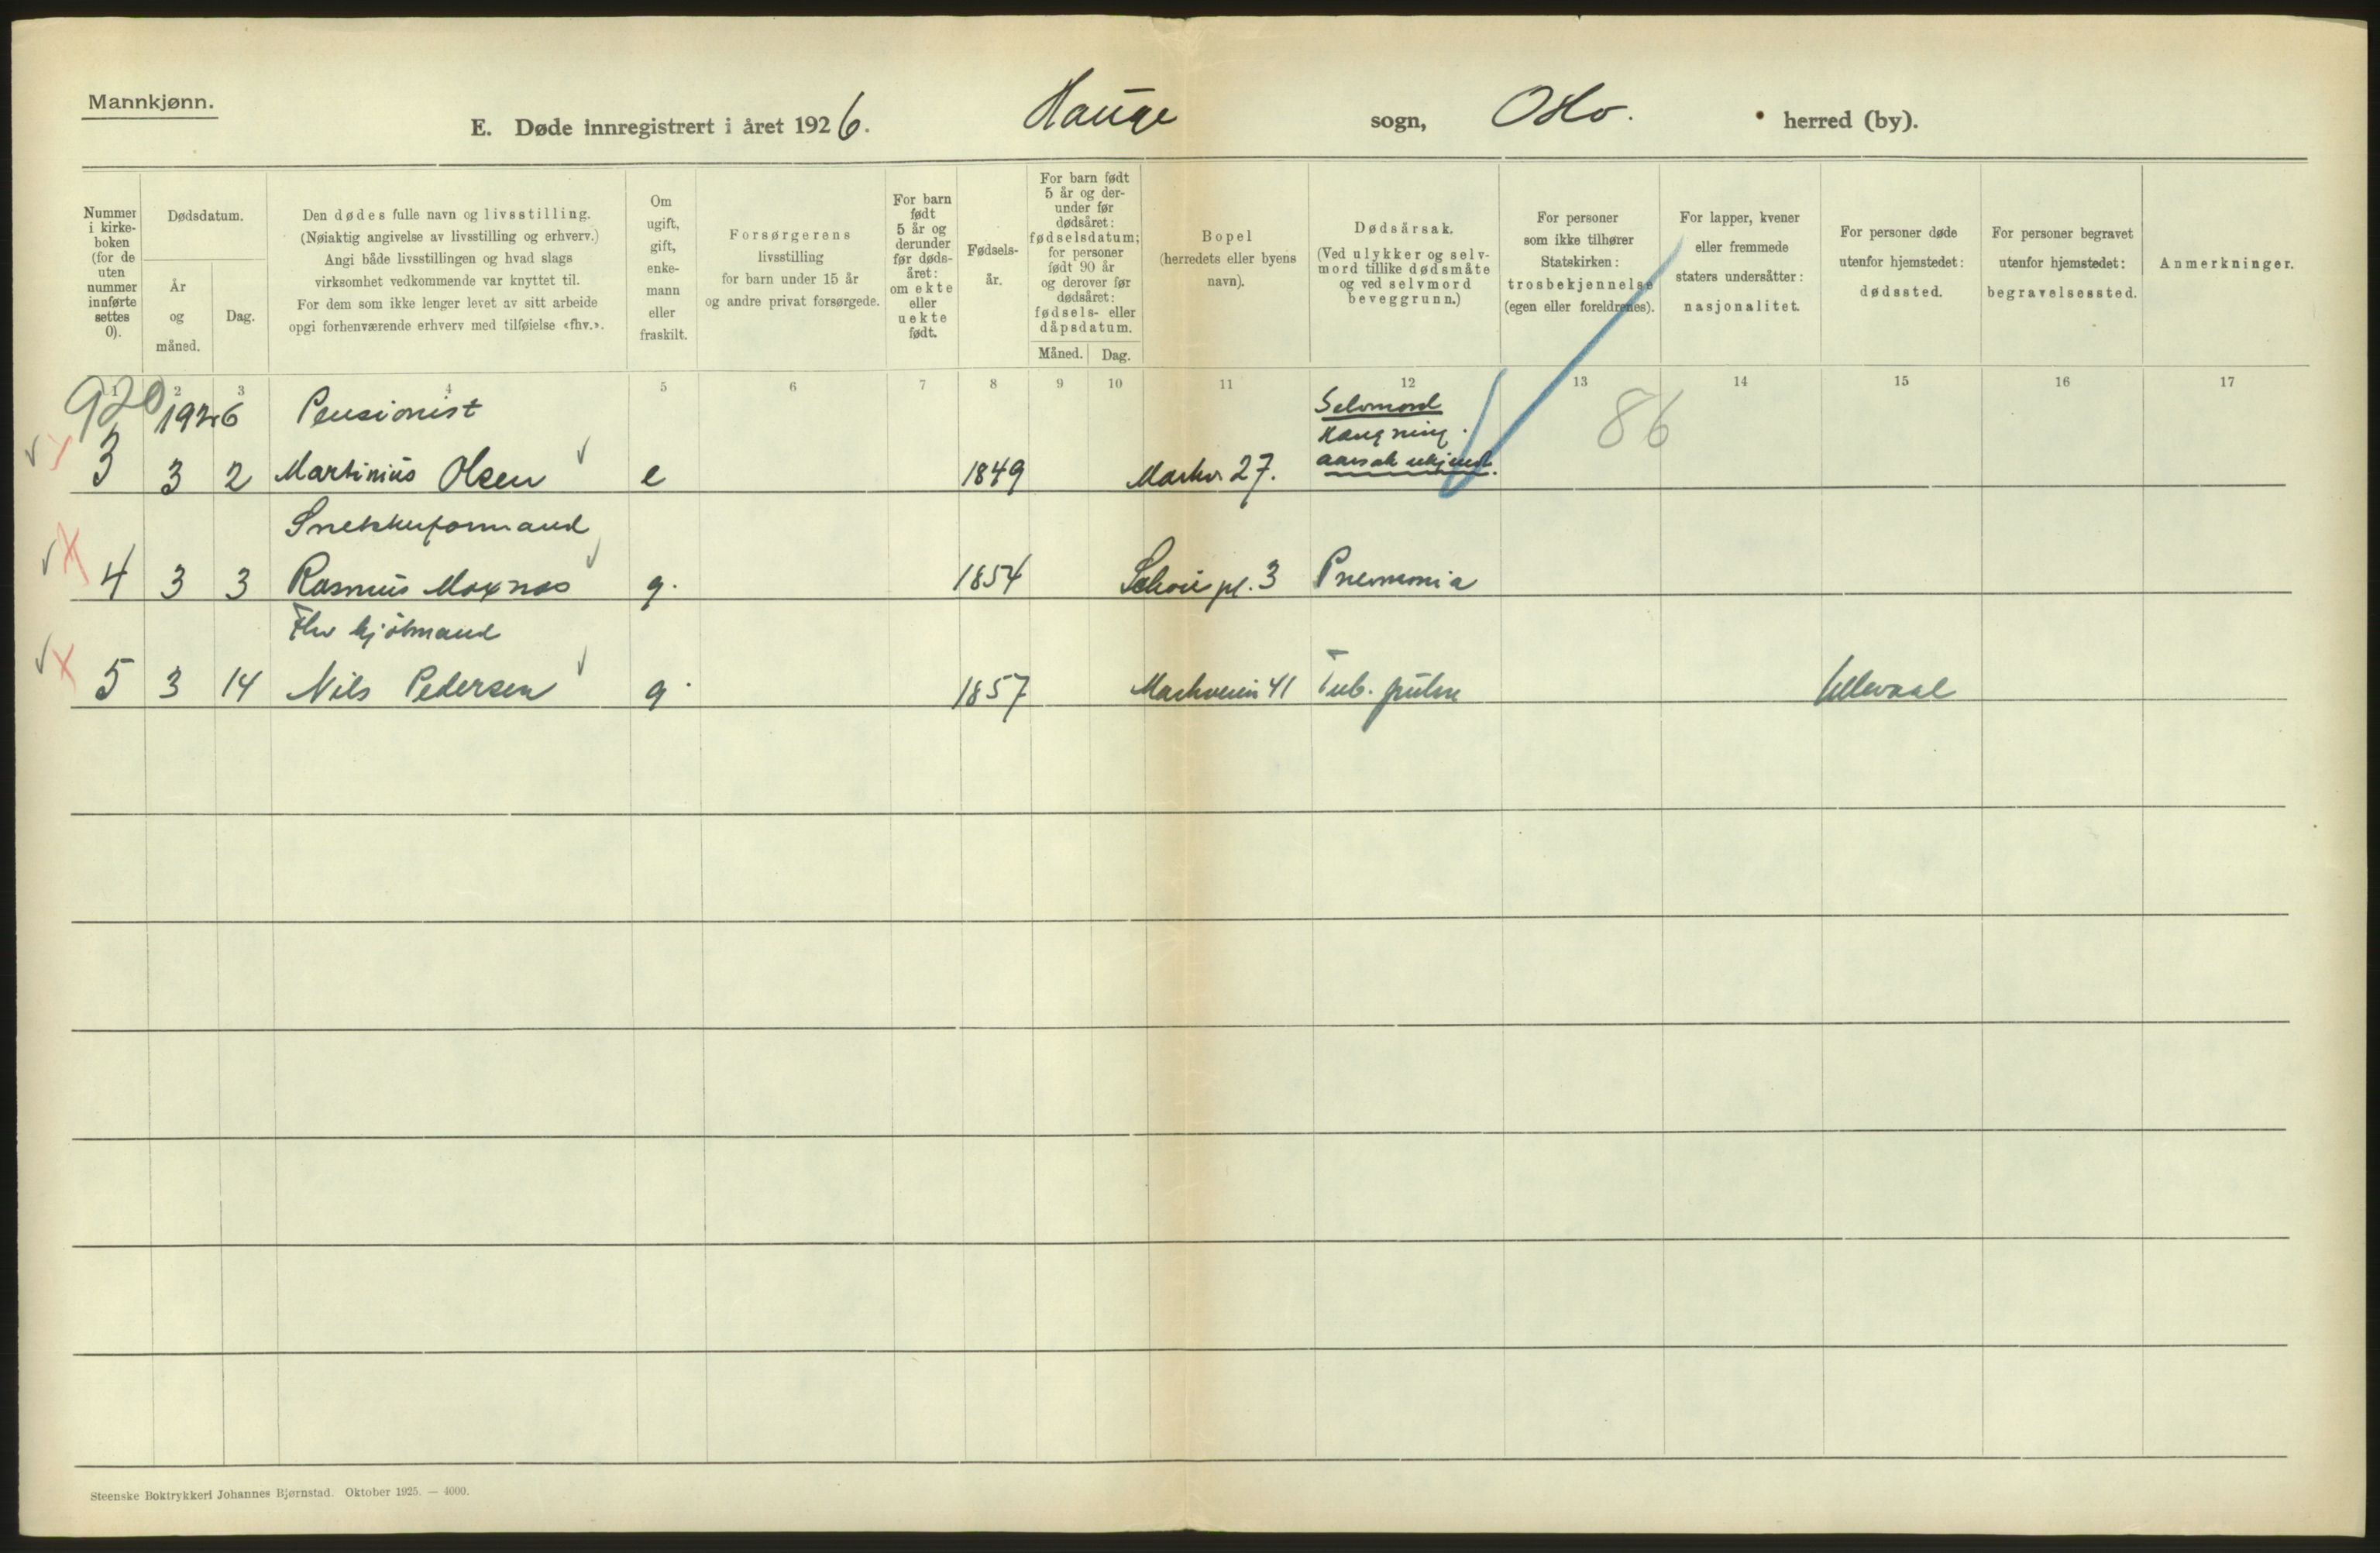 Mannkjønn.
E. Døde innregistrert i året 1926. Hauge sogn, Oslo. herred (by).
Nummer i kirke-boken (for de uten nummer innførte settes 0).
Dødsdatum.
År og måned.
Dag.
Den dødes fulle navn og livsstilling.
(Nøiaktig angivelse av livsstilling og erhverv.)
Angi både livsstillingen og hvad slags
virksomhet vedkommende var knyttet til.
For dem som ikke lenger levet av sitt arbeide
opgi forhenværende erhverv med tilføielse «fhv.».
Om ugift, gift, enke-mann eller fraskilt.
Forsørgerens
livsstilling
for barn under 15 år
og andre privat forsørgede.
For barn født 5 år og derunder før døds-året: om ekte eller uekte født.
Fødsels-år.
For barn født 5 år og der-under før dødsåret: fødselsdatum; for personer født 90 år og derover før dødsåret: fødsels- eller dåpsdatum.
Måned. Dag.
Bopel
(herredets eller byens
navn).
Dødsårsak.
(Ved ulykker og selv-
mord tillike dødsmåte
og ved selvmord
beveggrunn.)
For personer
som ikke tilhører
Statskirken:
trosbekjennelse
(egen eller foreldrenes).
For lapper, kvener
eller fremmede
staters undersåtter:
nasjonalitet.
For personer døde
utenfor hjemstedet:
dødssted.
For personer begravet
utenfor hjemstedet:
begravelsessted.
Anmerkninger.
1 2 3 4 5 6 7 8 9 10 11 12 13 14 15 16 17
920 1926 Pensionist Selvmord
Hængning. 86
3 3 2 Martinius Olsen e 1849 Markv 27. aarsak ukjent.
Snekkerformand
4 3 3 Rasmus Moxnes g. 1854 Schou pl. 3 Pneumonia
Fhv kjøbmand
5 3 14 Nils Pedersen g. 1857 Markveien 41 Tub. pulm Ullevaal
Steenske Boktrykkeri Johannes Bjørnstad. Oktober 1925. — 4000.